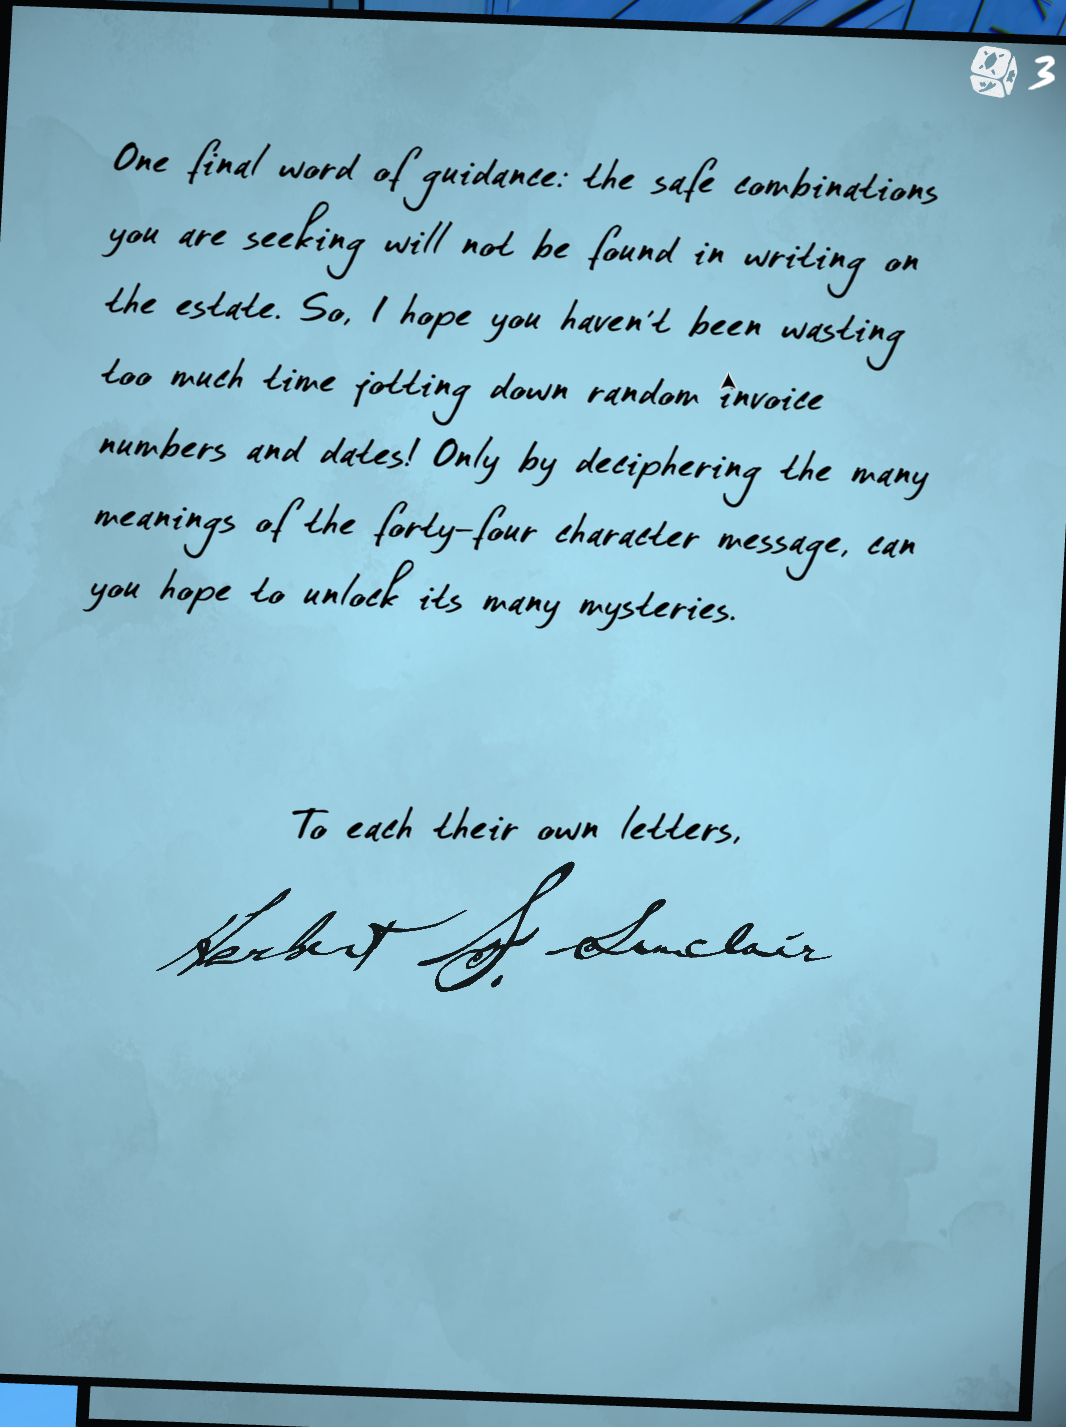 3
One final word of guidance: the safe combinations
you are seeking will not be found in writing on
the estate. So, I hope you haven't been wasting
too much time jotting down random invoice
numbers and dates! Only by deciphering the many
meanings of the forty-four character message, can
you hope to unlock its many mysteries.
To each their own letters,
Herbert S. Sinclair